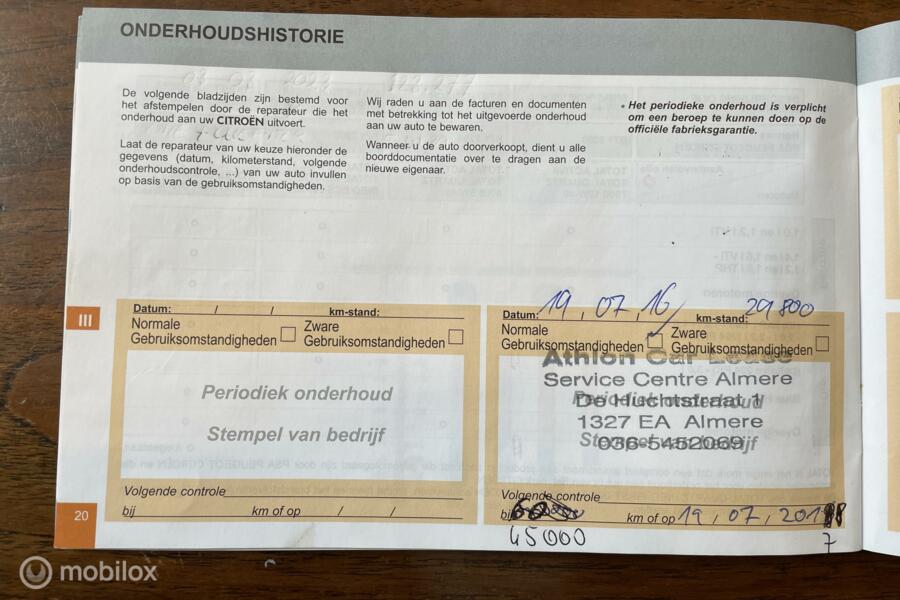 ONDERHOUDSHISTORIE
De volgende bladzijden zijn bestemd voor
het afstempelen door de reparateur die het
onderhoud aan uw CITROËN uitvoert.
Laat de reparateur van uw keuze hieronder de
gegevens (datum, kilometerstand, volgende
onderhoudscontrole, ...) van uw auto invullen
op basis van de gebruiksomstandigheden.
Wij raden u aan de facturen en documenten
met betrekking tot het uitgevoerde onderhoud
aan uw auto te bewaren.
Wanneer u de auto doorverkoopt, dient u alle
boorddocumentatie over te dragen aan de
nieuwe eigenaar.
• Het periodieke onderhoud is verplicht
om een beroep te kunnen doen op de
officiële fabrieksgarantie.
III
Datum: / / km-stand:
Normale
Gebruiksomstandigheden
Zware
Gebruiksomstandigheden
Periodiek onderhoud
Stempel van bedrijf
Volgende controle
bij km of op / /
Datum: 19, 07, 16 km-stand: 29800
Normale
Gebruiksomstandigheden
Zware
Gebruiksomstandigheden
Athlon Car Lease
Service Centre Almere
1327 EA Almere
036-5452069
Periodiek onderhoud
Stempel van bedrijf
Volgende controle
bij km of op 19, 07, 201
45000
7
20
mobilox